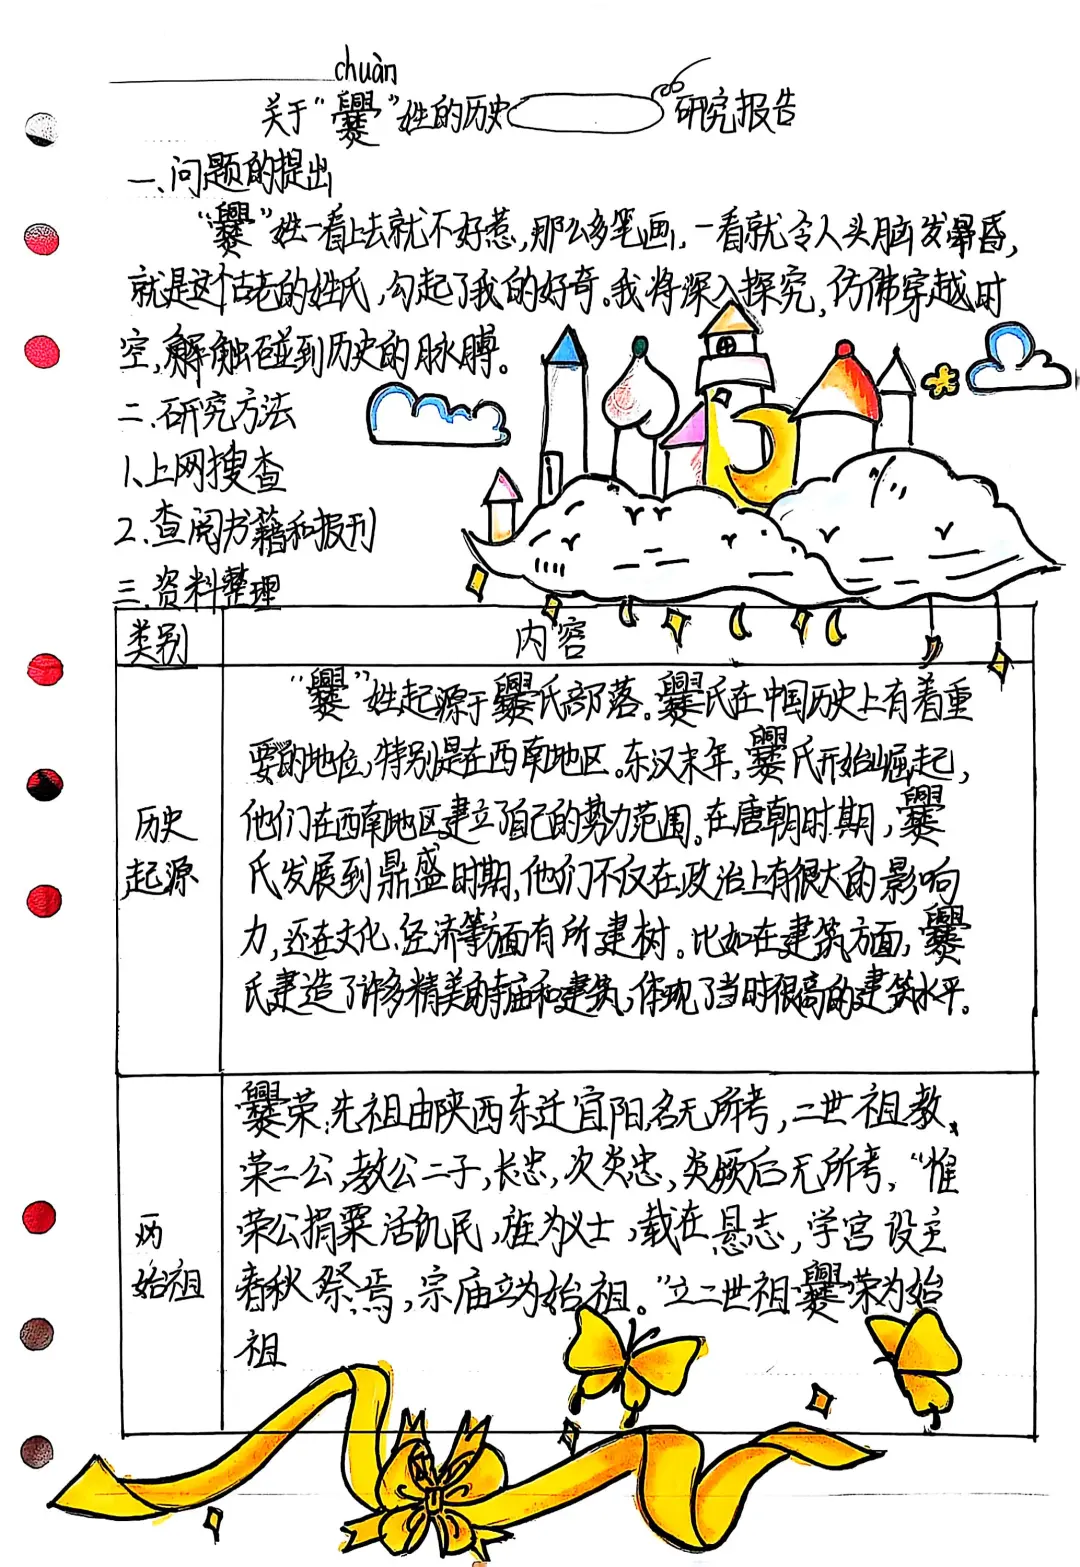 chuàn
关于“爨”姓的历史 研究报告
一、问题的提出
“爨”姓一看上去就不好惹,那么多笔画,一看就令人头脑发晕昏,
就是这个古老的姓氏,勾起了我的好奇。我将深入探究,仿佛穿越时
空,解触碰到历史的脉膊。
二.研究方法
1.上网搜查
2.查阅书籍和报刊
三.资料整理
类别 内容
“爨”姓起源于爨氏部落。爨氏在中国历史上有着重
要的地位,特别是在西南地区。东汉末年,爨氏开始崛起,
历史
起源
他们在西南地区建立了自己的势力范围。在唐朝时期,爨
氏发展到鼎盛时期,他们不仅在政治上有很大的影响
力,还在文化、经济等方面有所建树。比如在建筑方面,爨
氏建造了许多精美的寺庙和建筑,体现了当时很高的建筑水平。
爨荣:先祖由陕西东迁宜阳,名无所考,二世祖教、
荣二公,教公二子,长忠,次炎忠,炎厥后无所考,“惟
两
始祖
荣公捐粟活饥民,旌为义士,载在县志,学宫设主
春秋祭焉,宗庙立为始祖。”立二世祖爨荣为始
祖